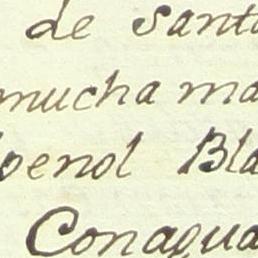 de Santa
mucha ma
oenol Bla
Conagua